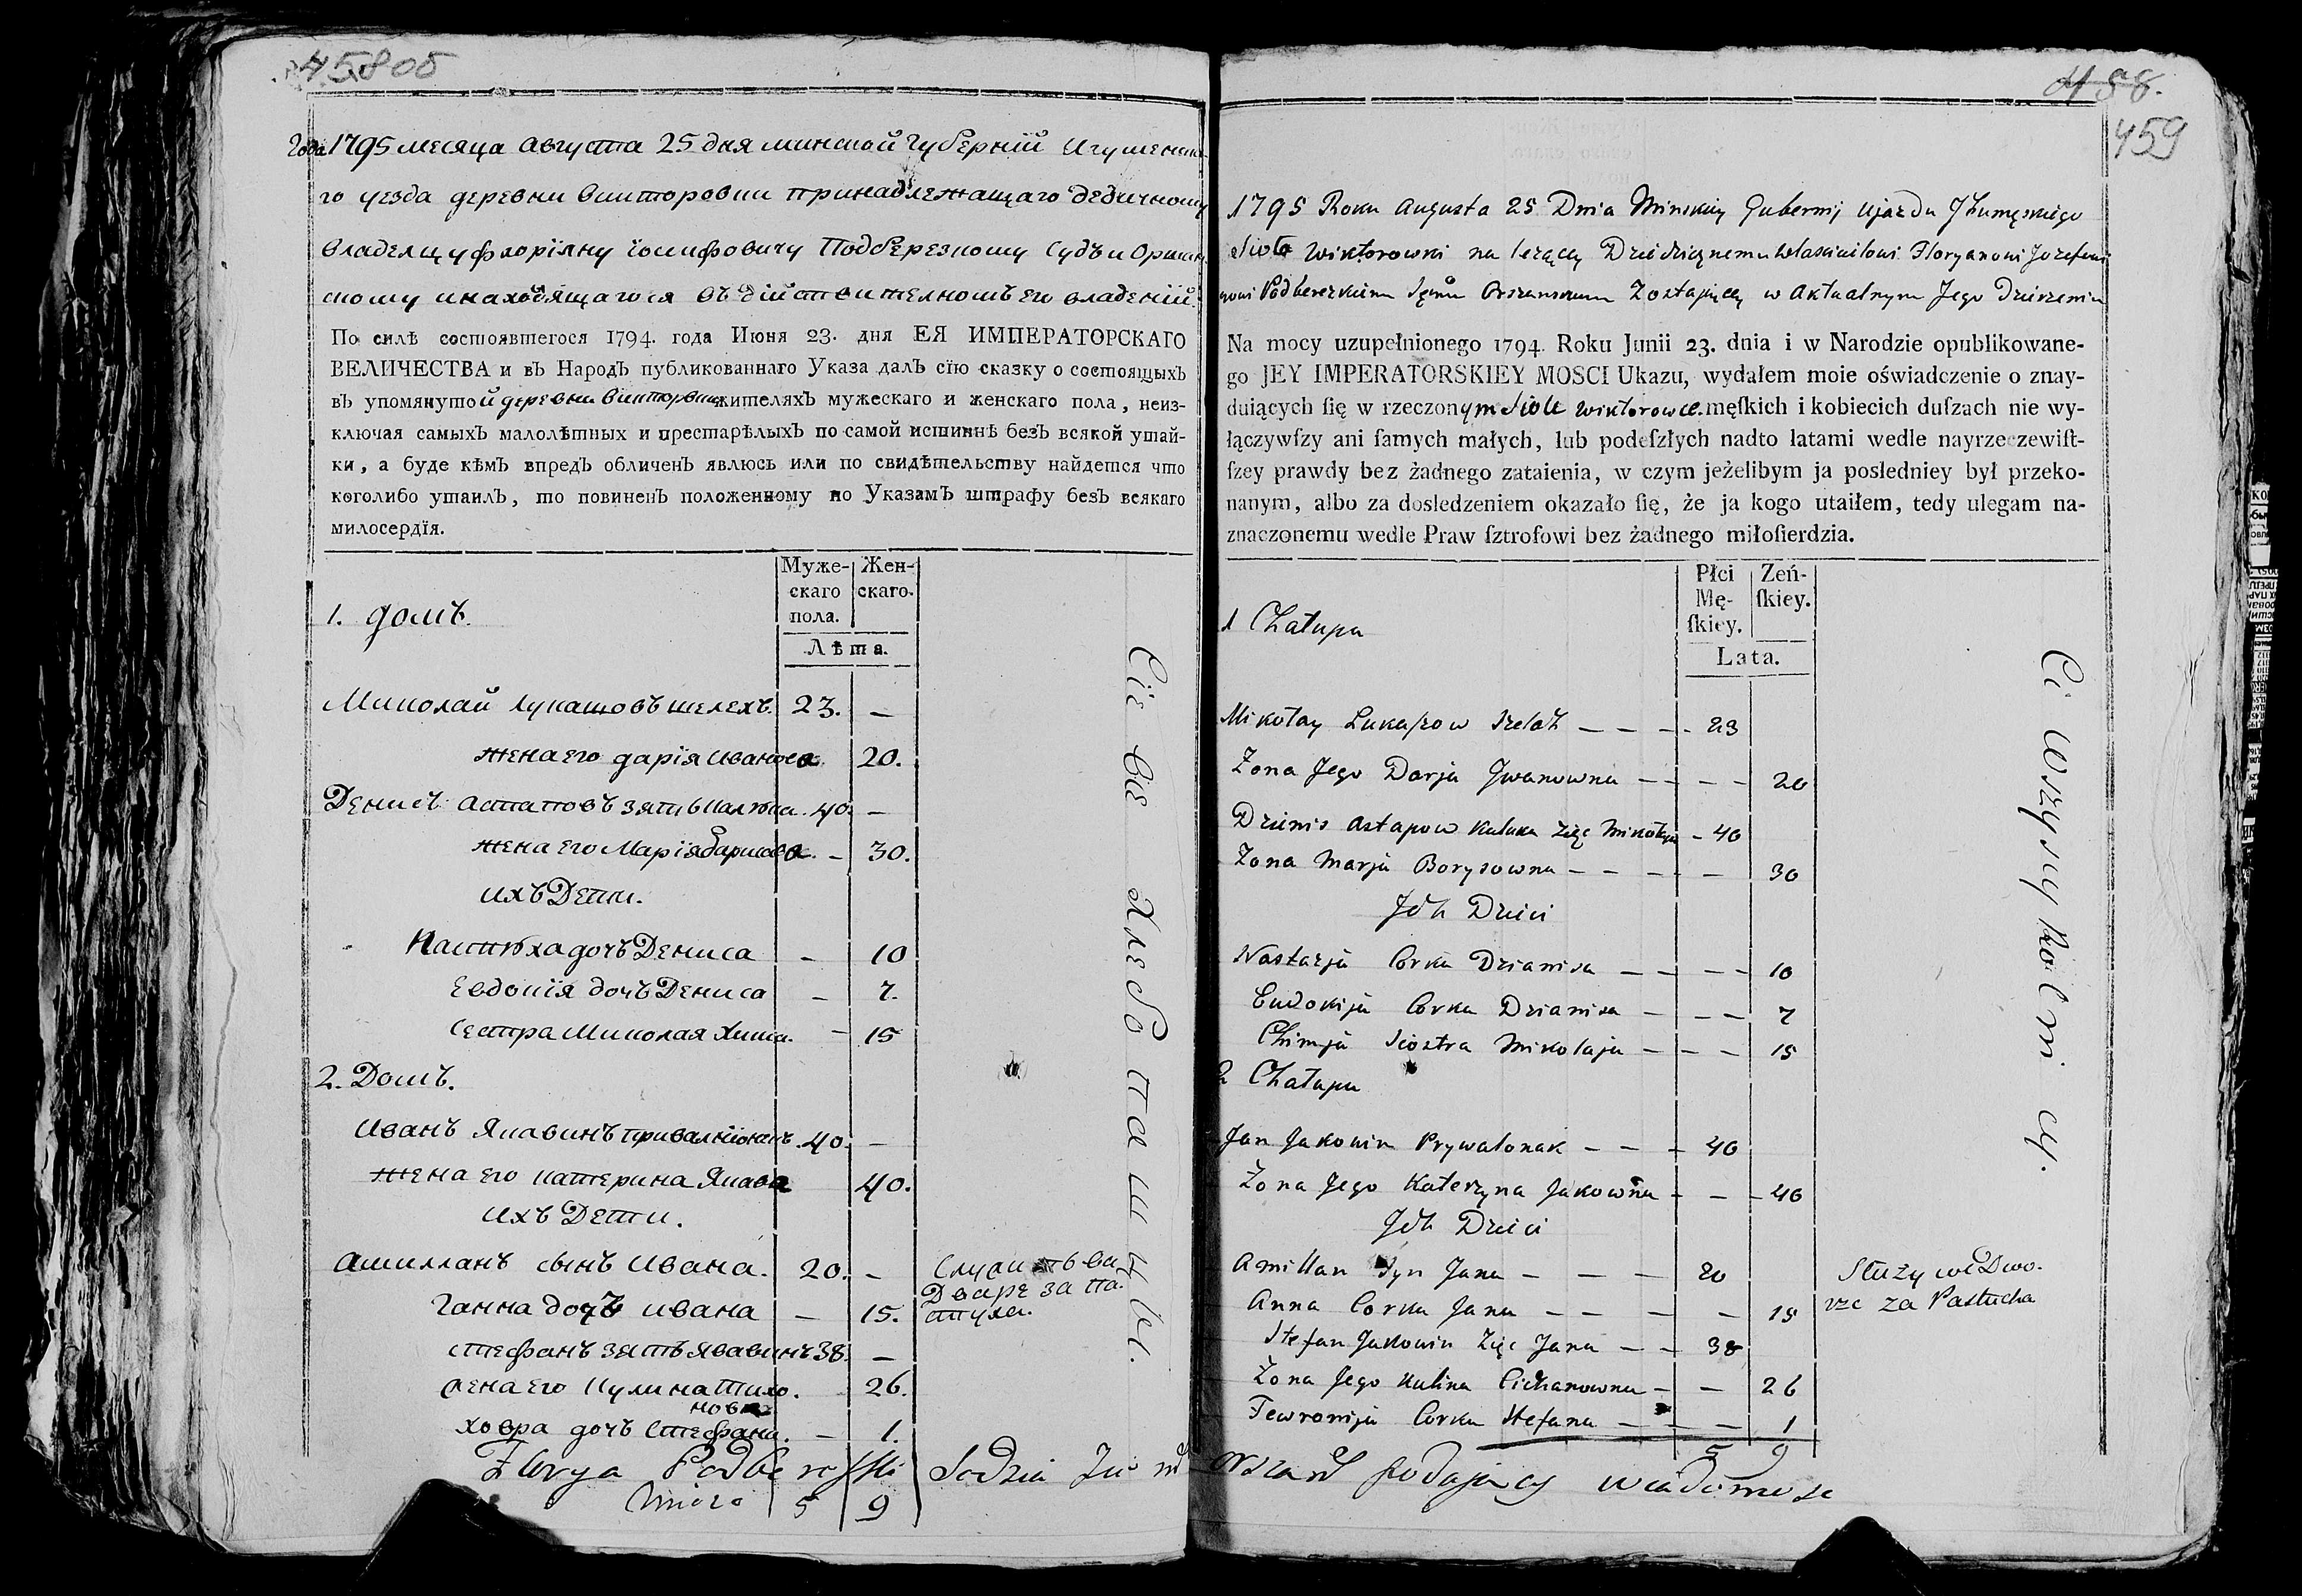 458об
Года 1795 месяца августа 25 дня минской Губерній Игуменска-
го уезда деревни викторовки принадлежащаго дедичному
владелцу флоріяну іосифовичу Подберезкому Судьи Оршан-
скому инаходящагося въ дійствителномъ его владеній.
По силѣ состоявшегося 1794. года Июня 23. дня ЕЯ ИМПЕРАТОРСКАГО
ВЕЛИЧЕСТВА и въ Народъ публикованнаго Указа далъ сїю сказку о состоящыхъ
въ упомянутой деревни викторовки жителяхъ мужескаго и женскаго пола, неиз-
ключая самыхъ малолѣтныхъ и престарѣлыхъ по самой истиннѣ безъ всякой утай-
ки, а буде кѣмъ впредъ обличенъ явлюсь или по свидѣтельству найдется что
коголибо утаилъ, то повиненъ положенному по Указамъ штрафу безъ всякаго
милосердїя.
Муже- Жен-
скаго скаго.
пола.
1. домъ.
Лѣта.
Миколай Лукашовъ шелехъ. 23. —
жена его дарія иванова. 20.
Денисъ астаповъ зять 40. —
жена его Марія барисава. — 30.
ихъ Дети.
Настюха дочъ Дениса — 10
Евдокія дочъ Дениса — 7.
Сестра Миколая Химка. — 15
2. Домъ.
Иванъ Якавинъ 40. —
жена его катерина Якава 40.
ихъ Дети.
Амиллянъ сынъ Ивана. 20. — Служить ва
Дваре за па-
стуха.
Ганна дочъ ивана — 15.
стефанъ зять Якавинъ 38. —
жена его Кулина Тихо- 26.
новна
ховра дочъ Стефана. — 1.
Сіе все хлебопашцы.
5 9
458.
459
1795 Roku Augusta 25 Dnia Minskiey Gubernij Ujazdu Jhumęskiego
Sioła Wiktorowki na leżącey Dziedzicznemu włascicilowi Floryanowi Jozefowi
czowi Podberezkiemu Sędziu Orszanskemu Zostającey w Aktualnym Jego Dzierżeniu
Na mocy uzupełnionego 1794. Roku Junii 23. dnia i w Narodzie opublikowane-
go JEY IMPERATORSKIEY MOSCI Ukazu, wydałem moie oświadczenie o znay-
duiących ſię w rzeczonym Siole Wiktorowce męſkich i kobiecich duſzach nie wy-
łączywſzy ani ſamych małych, lub podeſzłych nadto latami wedle nayrzeczewiſt-
ſzey prawdy bez żadnego zataienia, w czym jeżelibym ja posledniey był przeko-
nanym, albo za dosledzeniem okazało ſię, że ja kogo utaiłem, tedy ulegam na-
znaczonemu wedle Praw ſztrofowi bez żadnego miłoſierdzia.
Płci Zeń-
Mę- ſkiey.
ſkiey.
1 Chałupa
Lata.
Mikołay Lukaſzow Szelach — — — 23
Zona Jego Darja Jwanowna — — — 20
Dzienis Astapow Kaluka Zięc Mikołaja — 40
Zona Marja Borysowna — — — — 30
Jch Dzieci
Nastazja Corka Dzianisa — — — 10
Eudokija Corka Dzianisa — — — 7
Chimja Siostra Mikolaja — — — 15
2 Chałupa
Jan Jakowin Prywalonak — — — 40
Żona Jego Katerzyna Jakowna — — — 40
Jch Dzieci
Amillan Syn Jana — — — 20 Służy we Dwo-
rze za Pastucha
Anna Corka Jana — — — — 15
Stefan Jakowin Zięc Jana — — 38
Żona Jego Kulina Cichanowna — — 26
Fewronija Corka Stefana — — — 1
5 9
Ci wszyscy Rolnicy.
podający wiadomosc